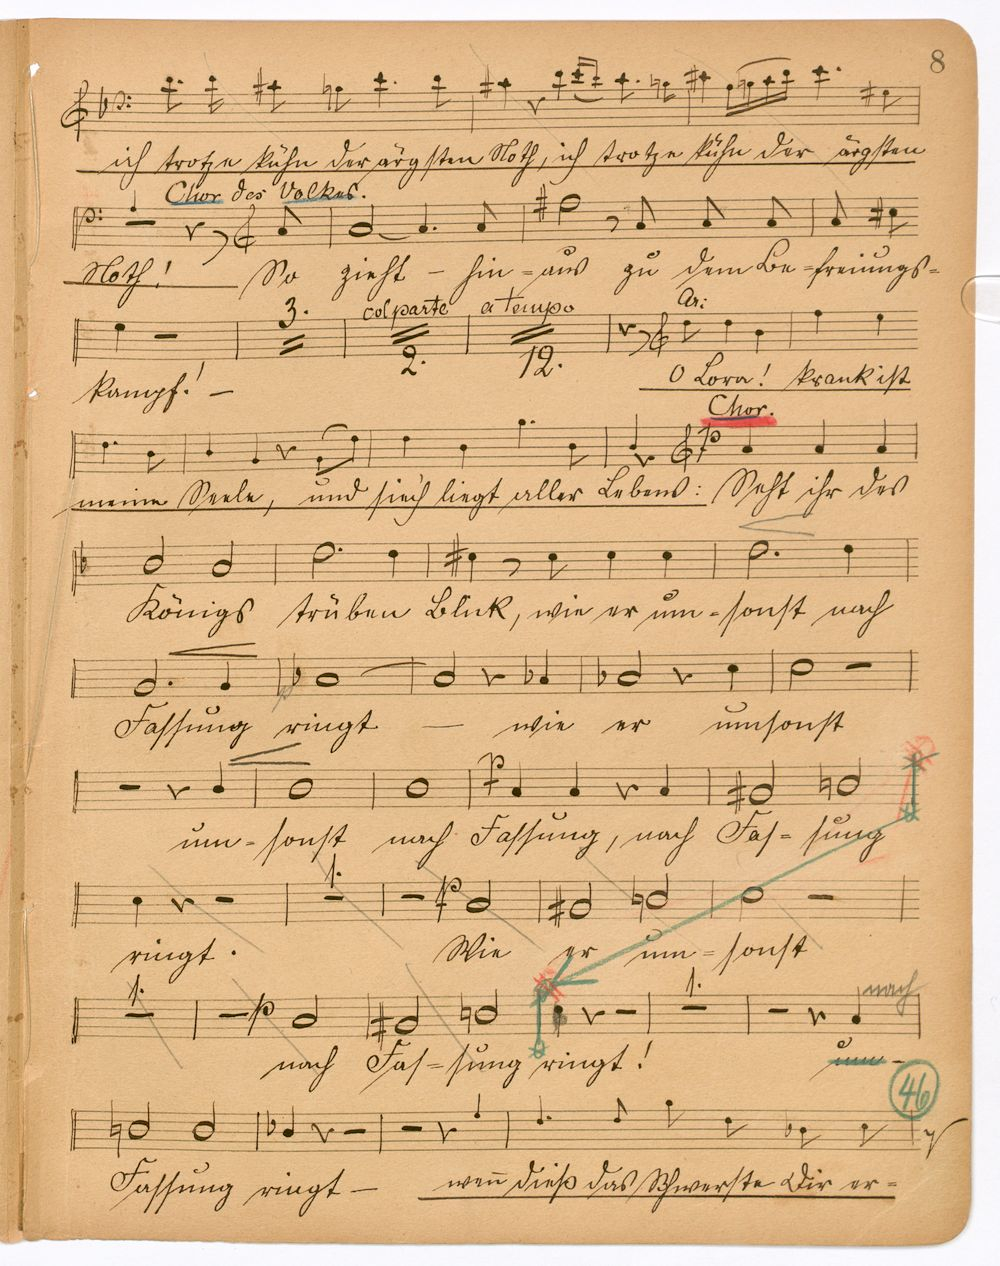 8
ich trotze kühn der ärgsten Noth, ich trotze kühn der ärgsten
Chor des Volkes.
Noth! So zieht – hin=aus zu dem Be=freiungs=
3. col parte a tempo Ar:
2. 12.
kampf! – O Lora! krank ist
Chor.
meine Seele, und siech liegt aller Lebens: Seht ihr des
Königs trüben Blick, wie er um=sonst nach
Fassung ringt — wie er umsonst
um=sonst nach Fassung, nach Fas=sung
1.
ringt. Wie er um=sonst
1. 1. nach
nach Fas=sung ringt! um –
46
Fassung ringt – wen̄ dieß das Schwerste Dir er=